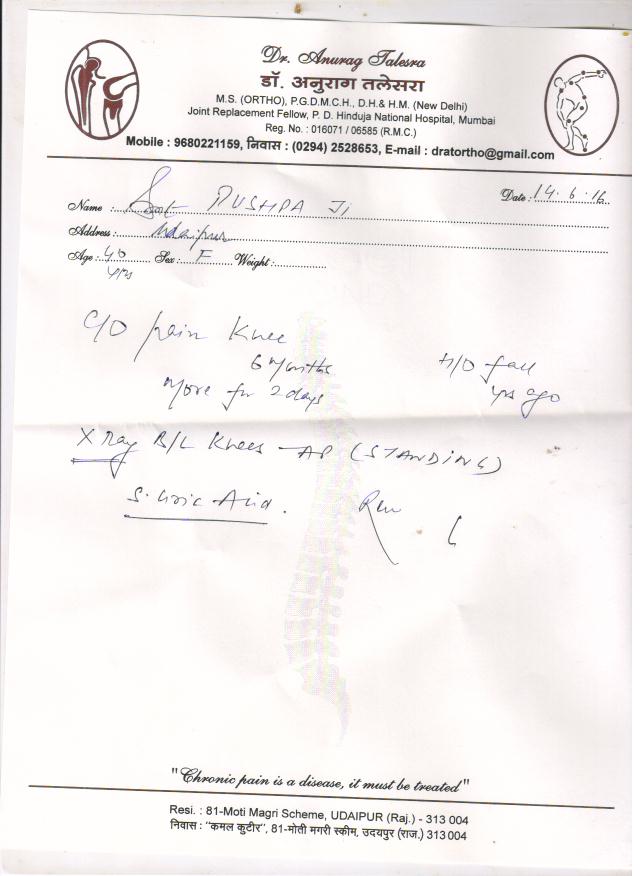 Dr. Anurag Talesra
डॉ. अनुराग तलेसरा
M.S. (ORTHO), P.G.D.M.C.H., D.H.& H.M. (New Delhi)
Joint Replacement Fellow, P. D. Hinduja National Hospital, Mumbai
Reg. No. : 016071 / 06585 (R.M.C.)
Mobile : 9680221159, निवास : (0294) 2528653, E-mail : dratortho@gmail.com
Date : 14.6.16
Name : PUSHPA Ji
Address : Udaipur
Age : 40 yrs Sex : F Weight :
C/O pain Knee
6 months H/O fall
more for 2 days yrs ago
X Ray B/L Knees - AP (STANDING)
S. Uric Acid.
"Chronic pain is a disease, it must be treated"
Resi. : 81-Moti Magri Scheme, UDAIPUR (Raj.) - 313 004
निवास : "कमल कुटीर", 81-मोती मगरी स्कीम, उदयपुर (राज.) 313 004